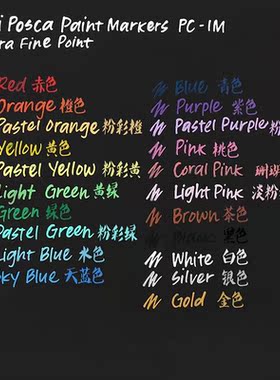 i Posca Paint Markers PC-1M
ra Fine Point
Red 赤色
Orange 橙色
Pastel Orange 粉彩橙
Yellow 黄色
Pastel Yellow 粉彩黄
Light Green 黄绿
Green 绿色
Pastel Green 粉彩绿
Light Blue 水色
ky Blue 天蓝色
Blue 青色
Purple 紫色
Pastel Purple 粉
Pink 桃色
Coral Pink 珊瑚
Light Pink 淡粉
Brown 茶色
Black 黑色
White 白色
Silver 银色
Gold 金色